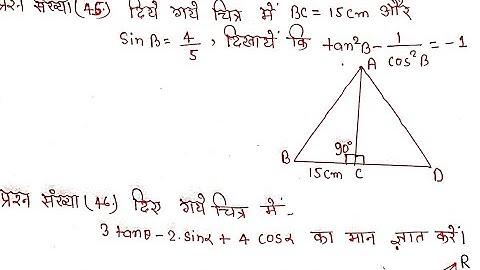 प्रश्न संख्या (45) दिये गये चित्र में BC = 15cm और
Sin B = 4/5, दिखायें कि tan²B - 1/cos²B = -1
A
90°
B 15cm C D
प्रश्न संख्या (46) दिए गये चित्र में-
3 tanθ - 2.sinα + 4 cosα का मान ज्ञात करें।
R